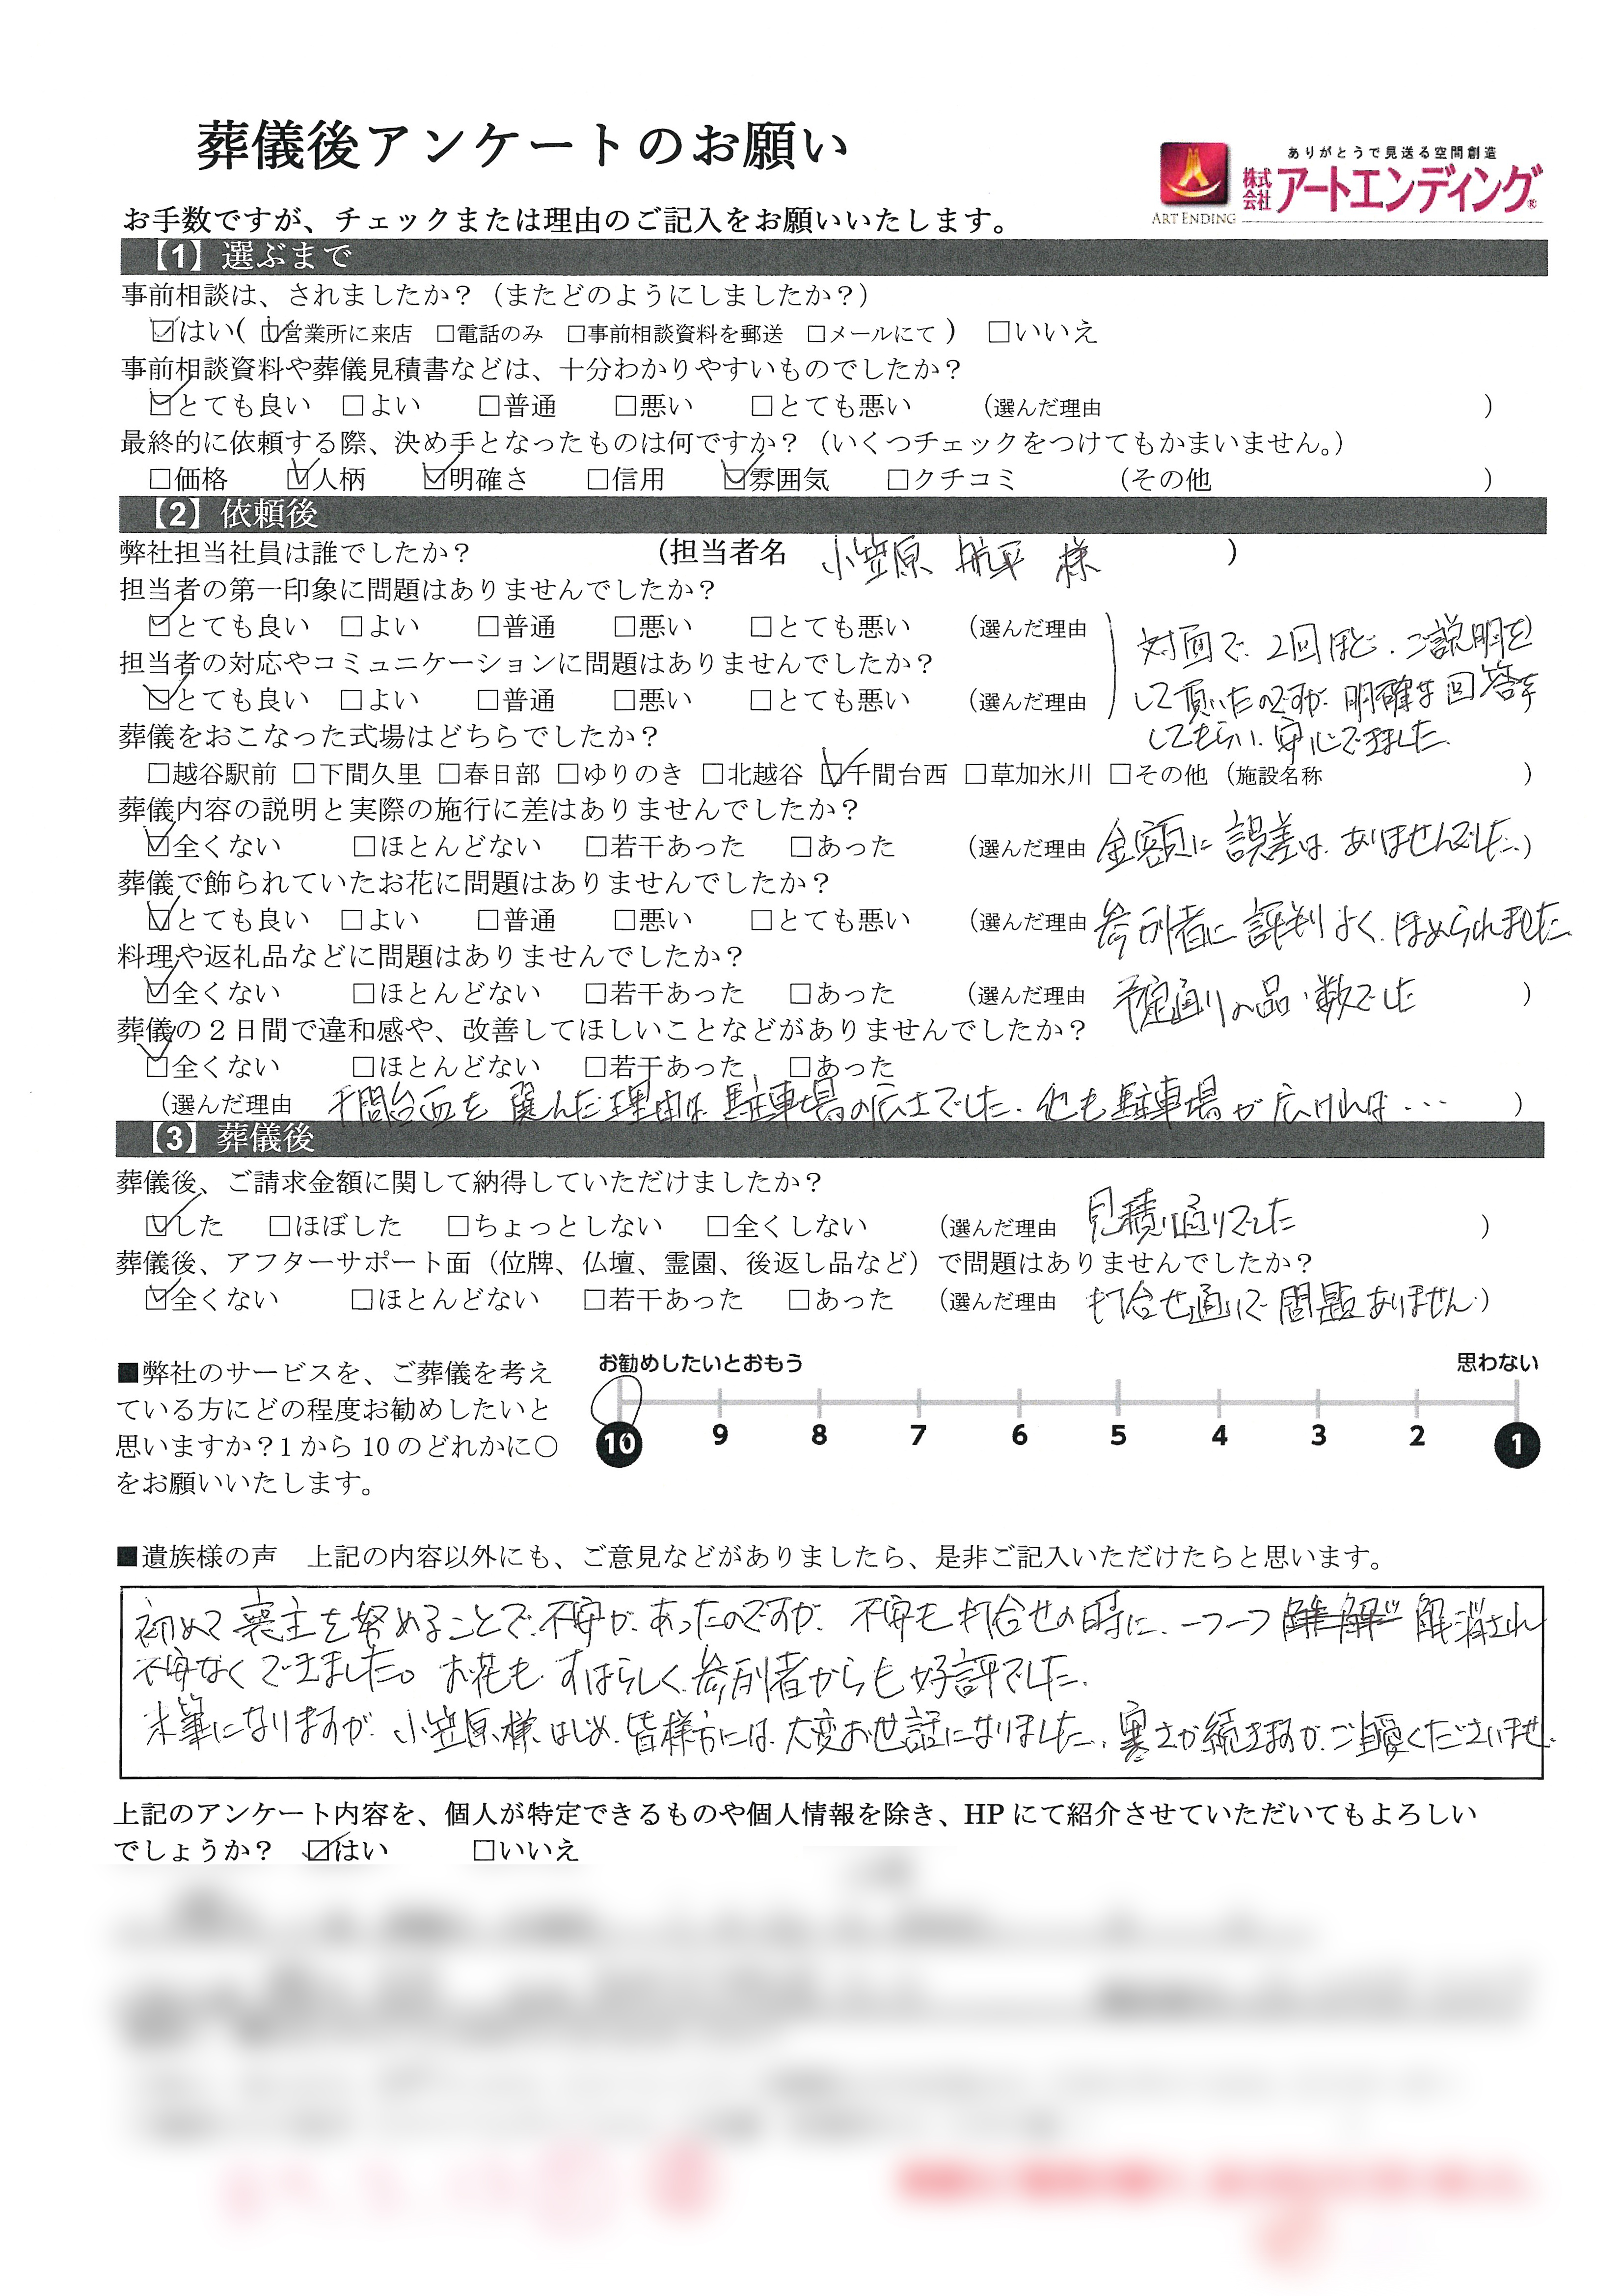 葬儀後アンケートのお願い
ありがとうで見送る空間創造
株式会社アートエンディング®
ART ENDING
お手数ですが、チェックまたは理由のご記入をお願いいたします。
【1】選ぶまで
事前相談は、されましたか？（またどのようにしましたか？）
☑はい（ ☑営業所に来店 □電話のみ □事前相談資料を郵送 □メールにて ） □いいえ
事前相談資料や葬儀見積書などは、十分わかりやすいものでしたか？
☑とても良い □よい □普通 □悪い □とても悪い （選んだ理由 ）
最終的に依頼する際、決め手となったものは何ですか？（いくつチェックをつけてもかまいません。）
□価格 ☑人柄 ☑明確さ □信用 ☑雰囲気 □クチコミ （その他 ）
【2】依頼後
弊社担当社員は誰でしたか？ （担当者名 小笠原 航平 様 ）
担当者の第一印象に問題はありませんでしたか？
☑とても良い □よい □普通 □悪い □とても悪い （選んだ理由
対面で、2回ほど、ご説明を
担当者の対応やコミュニケーションに問題はありませんでしたか？
☑とても良い □よい □普通 □悪い □とても悪い （選んだ理由
して頂いたのですが、明確な回答を
してもらい、安心できました。
葬儀をおこなった式場はどちらでしたか？
□越谷駅前 □下間久里 □春日部 □ゆりのき □北越谷 ☑千間台西 □草加氷川 □その他（施設名称 ）
葬儀内容の説明と実際の施行に差はありませんでしたか？
☑全くない □ほとんどない □若干あった □あった （選んだ理由 金額に誤差は、ありませんでした。）
葬儀で飾られていたお花に問題はありませんでしたか？
☑とても良い □よい □普通 □悪い □とても悪い （選んだ理由 参列者に評判よく、ほめられました。
料理や返礼品などに問題はありませんでしたか？
☑全くない □ほとんどない □若干あった □あった （選んだ理由 予定通りの品・数でした ）
葬儀の２日間で違和感や、改善してほしいことなどがありませんでしたか？
☑全くない □ほとんどない □若干あった □あった
（選んだ理由 千間台西を選んだ理由は、駐車場の広さでした。他も駐車場が広ければ… ）
【3】葬儀後
葬儀後、ご請求金額に関して納得していただけましたか？
☑した □ほぼした □ちょっとしない □全くしない （選んだ理由 見積り通りでした ）
葬儀後、アフターサポート面（位牌、仏壇、霊園、後返し品など）で問題はありませんでしたか？
☑全くない □ほとんどない □若干あった □あった （選んだ理由 打合せ通りで問題ありません）
■弊社のサービスを、ご葬儀を考え
ている方にどの程度お勧めしたいと
思いますか？1 から 10 のどれかに○
をお願いいたします。
お勧めしたいとおもう 思わない
10 9 8 7 6 5 4 3 2 1
■遺族様の声 上記の内容以外にも、ご意見などがありましたら、是非ご記入いただけたらと思います。
初めて喪主を努めることで、不安が、あったのですが、不安も打合せの時に、一つ一つ 解消され
不安なくできました。お花も、すばらしく、参列者からも好評でした。
末筆になりますが、小笠原様はじめ、皆様方には、大変お世話になりました。寒さが続きますが、ご自愛くださいませ。
上記のアンケート内容を、個人が特定できるものや個人情報を除き、HP にて紹介させていただいてもよろしい
でしょうか？ ☑はい □いいえ